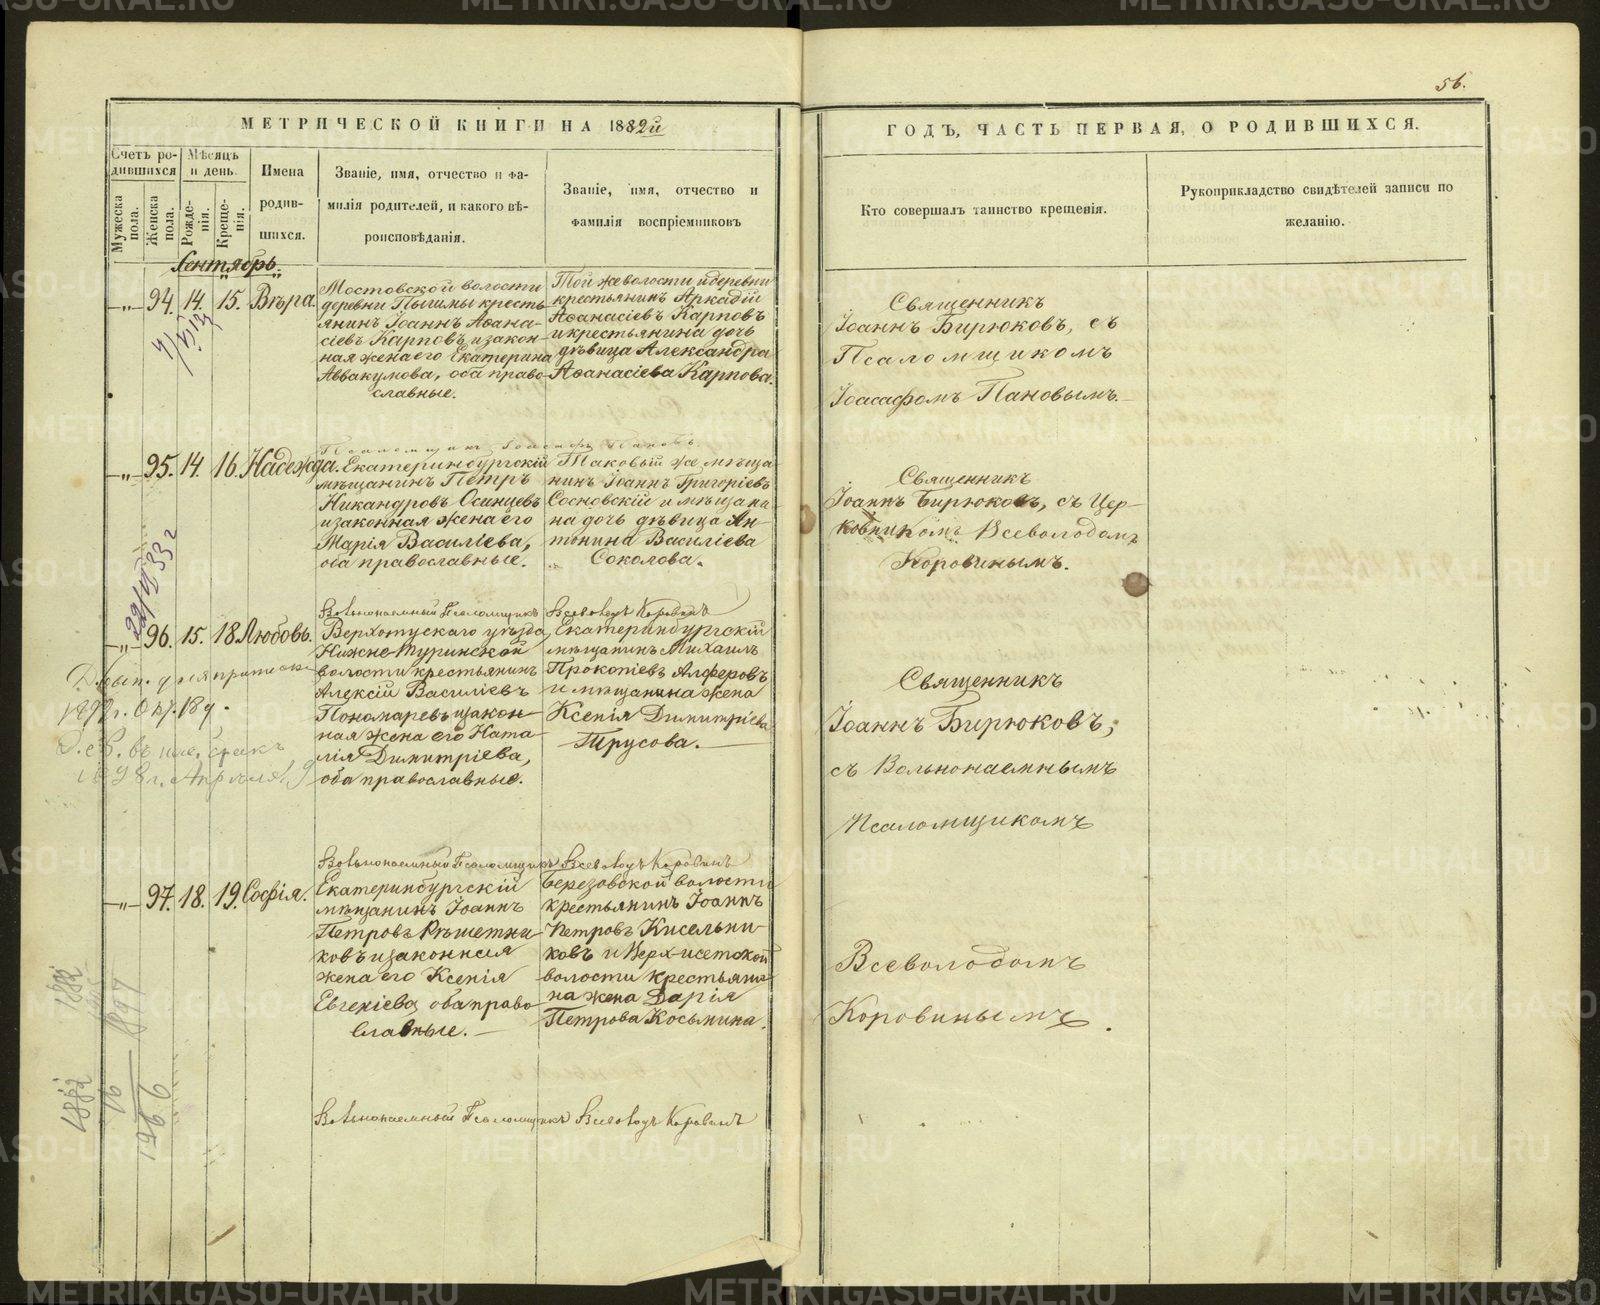 56.
МЕТРИЧЕСКОЙ КНИГИ НА 1882й
ГОДЪ, ЧАСТЬ ПЕРВАЯ, О РОДИВШИХСЯ.
Счетъ ро-
дившихся
Мужеска пола.
Женска пола.
Мѣсяцъ
и день.
Рожде-
нія.
Креще-
нія.
Имена
родив-
шихся.
Званіе, имя, отчество и фа-
милія родителей, и какого вѣ-
роисповѣданія.
Званіе, имя, отчество и
фамилія воспріемниковъ
Кто совершалъ таинство крещенія.
Рукоприкладство свидѣтелей записи по
желанію.
Сентябрь.
-„- 94. 14. 15. Вѣра.
Мостовской волости
деревни Пышмы кресть-
янинъ Іоаннъ Аѳана-
сіевъ Карповъ и закон-
ная жена его Екатерина
Аввакумова, оба право-
славные.
Той же волости и деревни
крестьянинъ Аркадій
Аѳанасіевъ Карповъ
и крестьянина дочь
дѣвица Александра
Аѳанасіева Карпова.
Священникъ
Іоаннъ Бирюковъ, съ
Псаломщикомъ
Іоасафомъ Пановымъ.
Псаломщикъ Іоасафъ Пановъ.
-„- 95. 14. 16. Надежда.
Екатеринбургскій
мѣщанинъ Петръ
Никандровъ Осинцевъ
и законная жена его
Марія Василіева,
оба православные.
Таковый же мѣща
нинъ Іоаннъ Григоріевъ
Сосновскій и мѣщани
на дочь дѣвица Ан-
тонина Василіева
Соколова.
Священникъ
Іоаннъ Бирюковъ, съ Цер-
ковникомъ Всеволодомъ
Коровинымъ.
Вольнонаемный Псаломщикъ Всеволодъ Коровинъ
-„- 96. 15. 18. Любовь.
Верхотускаго уѣзда
Нижне-Туринской
волости крестьянинъ
Алексій Василіевъ
Пономаревъ и закон-
ная жена его Ната-
лія Димитріева,
оба православные.
Екатеринбургскій
мѣщанинъ Михаилъ
Прокопіевъ Алферовъ
и мѣщанина жена
Ксенія Димитріева
Трусова.
Священникъ
Іоаннъ Бирюковъ,
съ Вольнонаемнымъ
Псаломщикомъ
Всеволодомъ
Коровинымъ.
Вольнонаемный Псаломщикъ Всеволодъ Коровинъ
-„- 97. 18. 19. Софія.
Екатеринбургскій
мѣщанинъ Іоаннъ
Петровъ Рѣшетни
ковъ и законная
жена его Ксенія
Евгеніева, оба право
славные.
Березовской волости
крестьянинъ Іоаннъ
Петровъ Кисельни-
ковъ и Верх-исетской
волости крестьяни
на жена Дарія
Петрова Косьмина.
Вольнонаемный Псаломщикъ Всеволодъ Коровинъ
1882
16
1897
1966
METRIKI.GASO-URAL.RU